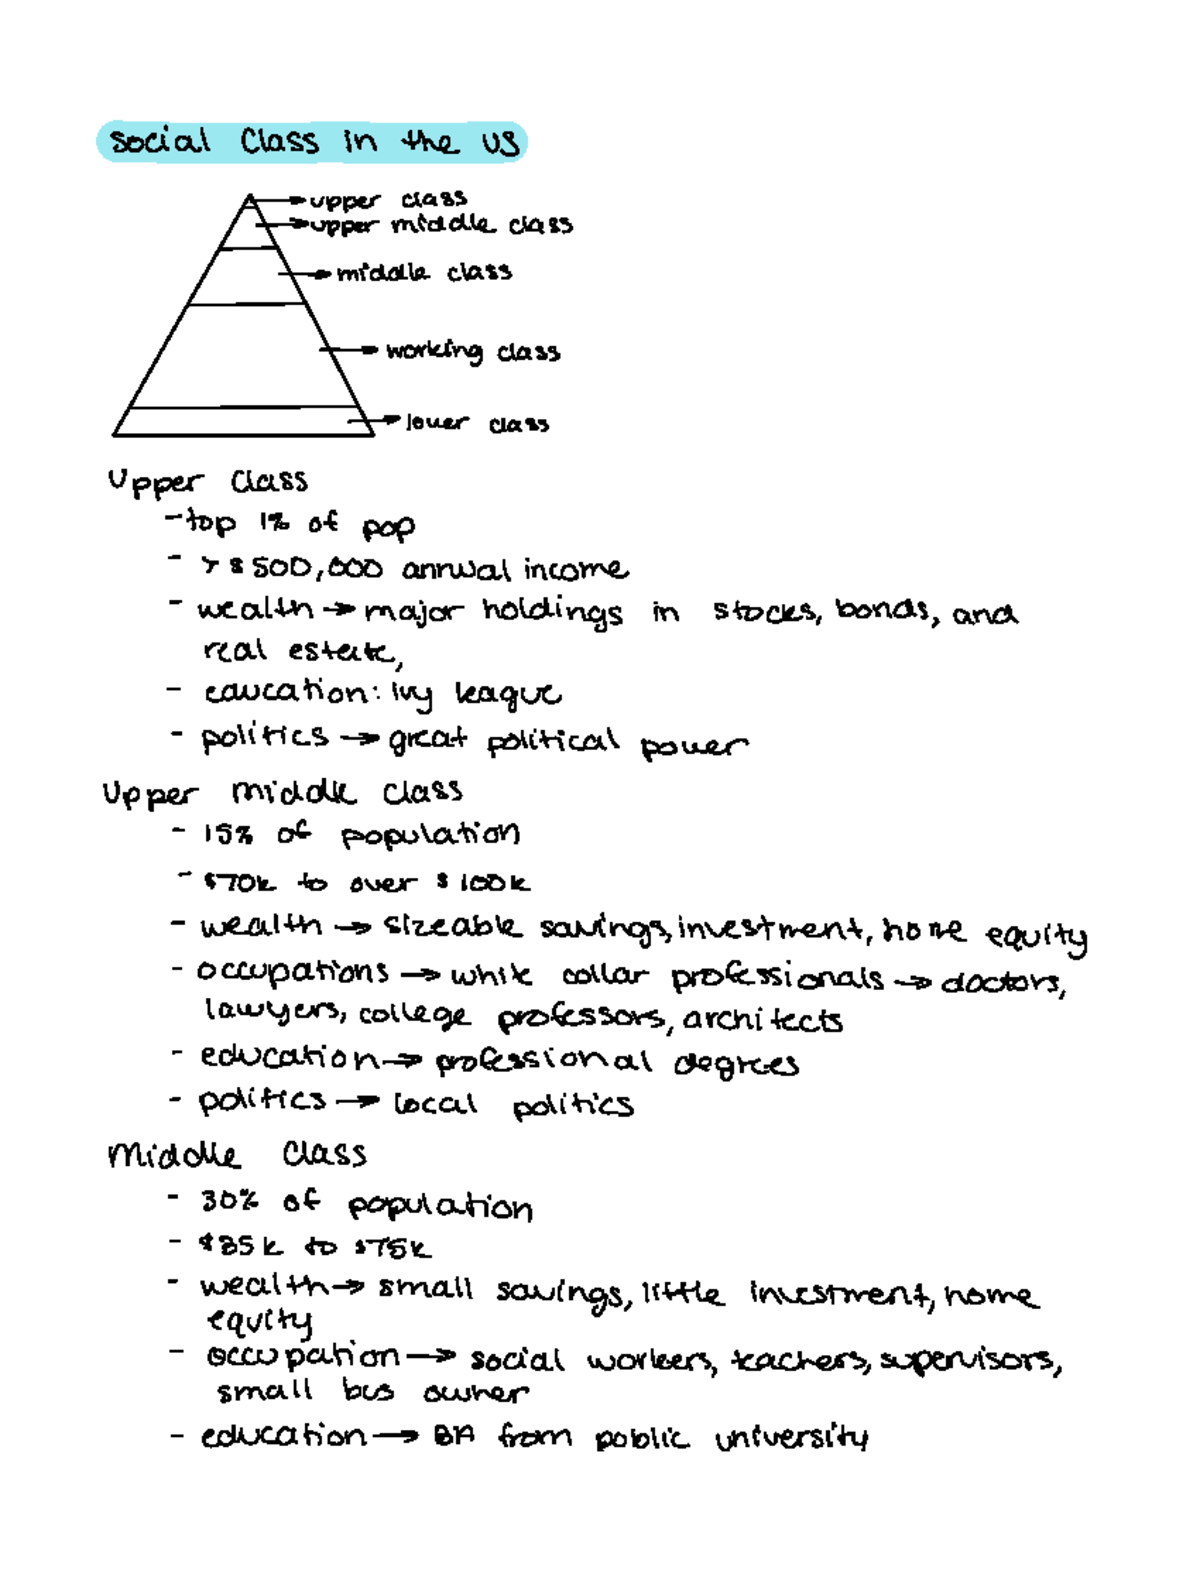 social Class in the US
→ upper class
→ upper middle class
→ middle class
→ working class
→ lower class
Upper Class
- top 1% of pop
- > $500,000 annual income
- wealth → major holdings in stocks, bonds, and
real estate,
- education: Ivy league
- politics → great political power
Upper middle class
- 15% of population
- $70k to over $100k
- wealth → sizeable savings, investment, home equity
- occupations → white collar professionals → doctors,
lawyers, college professors, architects
- education → professional degrees
- politics → local politics
Middle Class
- 30% of population
- $35k to $75k
- wealth → small savings, little investment, home
equity
- occupation → social workers, teachers, supervisors,
small bus owner
- education → BA from public university